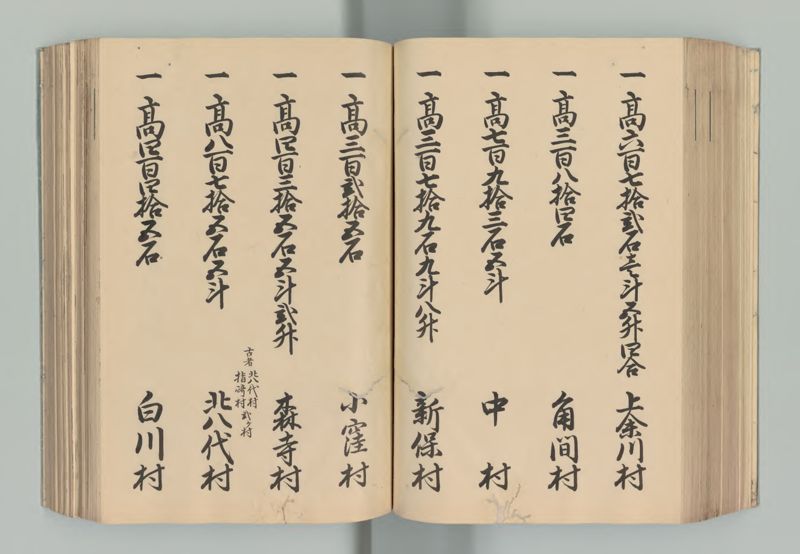 一 高六百七拾弐石壱斗五升四合 上余川村
一 高三百八拾四石 角間村
一 高七百九拾三石五斗 中村
一 高三百七拾九石九斗八升 新保村
一 高三百弐拾五石 小窪村
一 高四百三拾五石五斗弐升 森寺村
古者 北八代村
指崎村 弐ヶ村
一 高八百七拾五石五斗 北八代村
一 高四百四拾五石 白川村